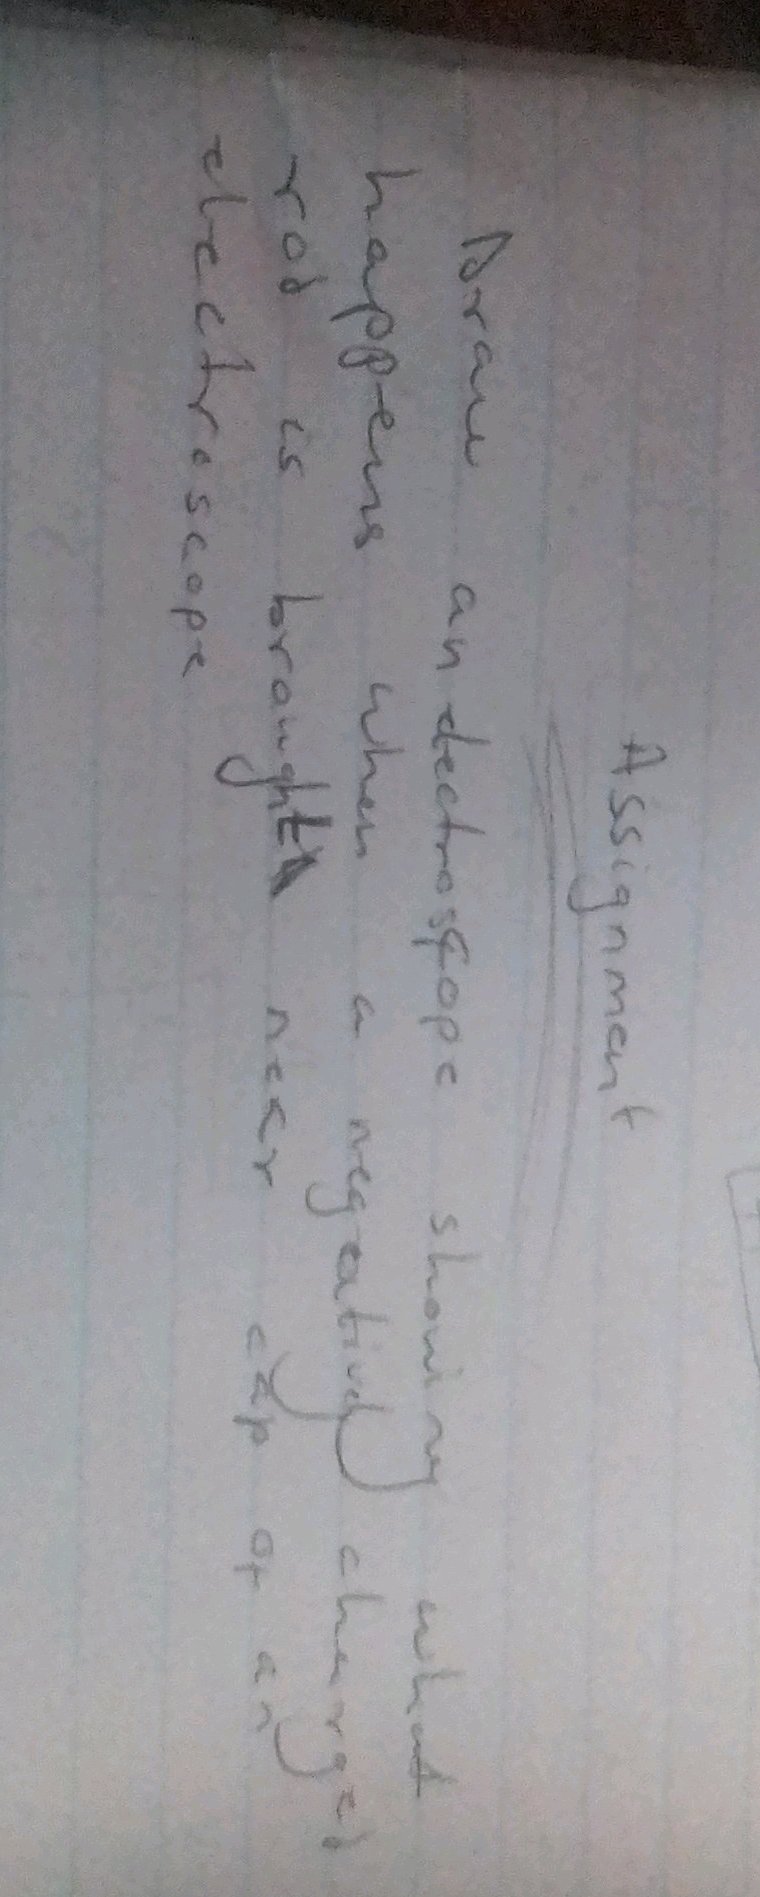 Assignment
Draw an electroscope showing what
happens when a negatively charged
rod is brought near cap or an
electroscope